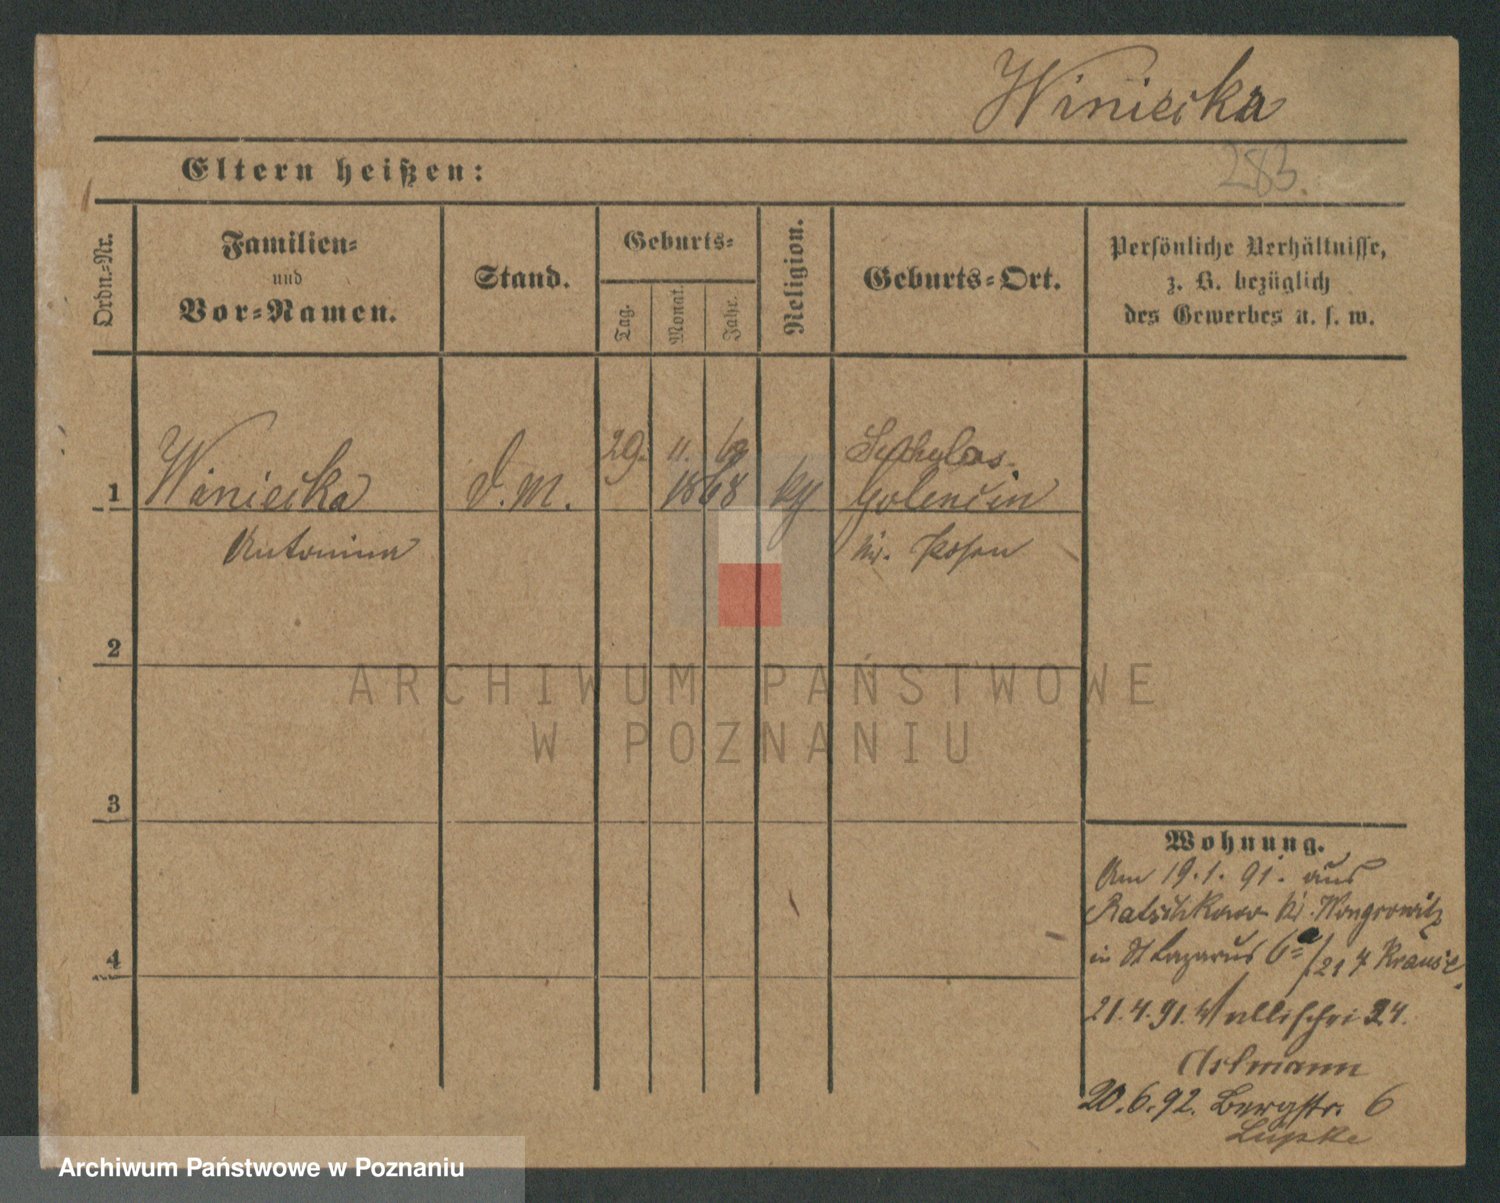 Winiecka
283.
Eltern heißen:
Ordn.-Nr.
Familien-
und
Vor-Namen.
Stand.
Geburts-
Tag.
Monat.
Jahr.
Religion.
Geburts-Ort.
Persönliche Verhältnisse,
z. B. bezüglich
des Gewerbes u. s. w.
1
Winiecka
Antonina
D. M.
29. 11. 69
1868
Golencin
Kr. Posen
2
3
4
ARCHIWUM PAŃSTWOWE
W POZNANIU
Wohnung.
Am 19.1.91. aus
Ratschkowo Kr. Wongrowitz
in St Lazarus 6a / Krause
21.4.91. Wallischei 24.
Aslmann
20.6.92. Bergstr. 6
Lüpke
Archiwum Państwowe w Poznaniu